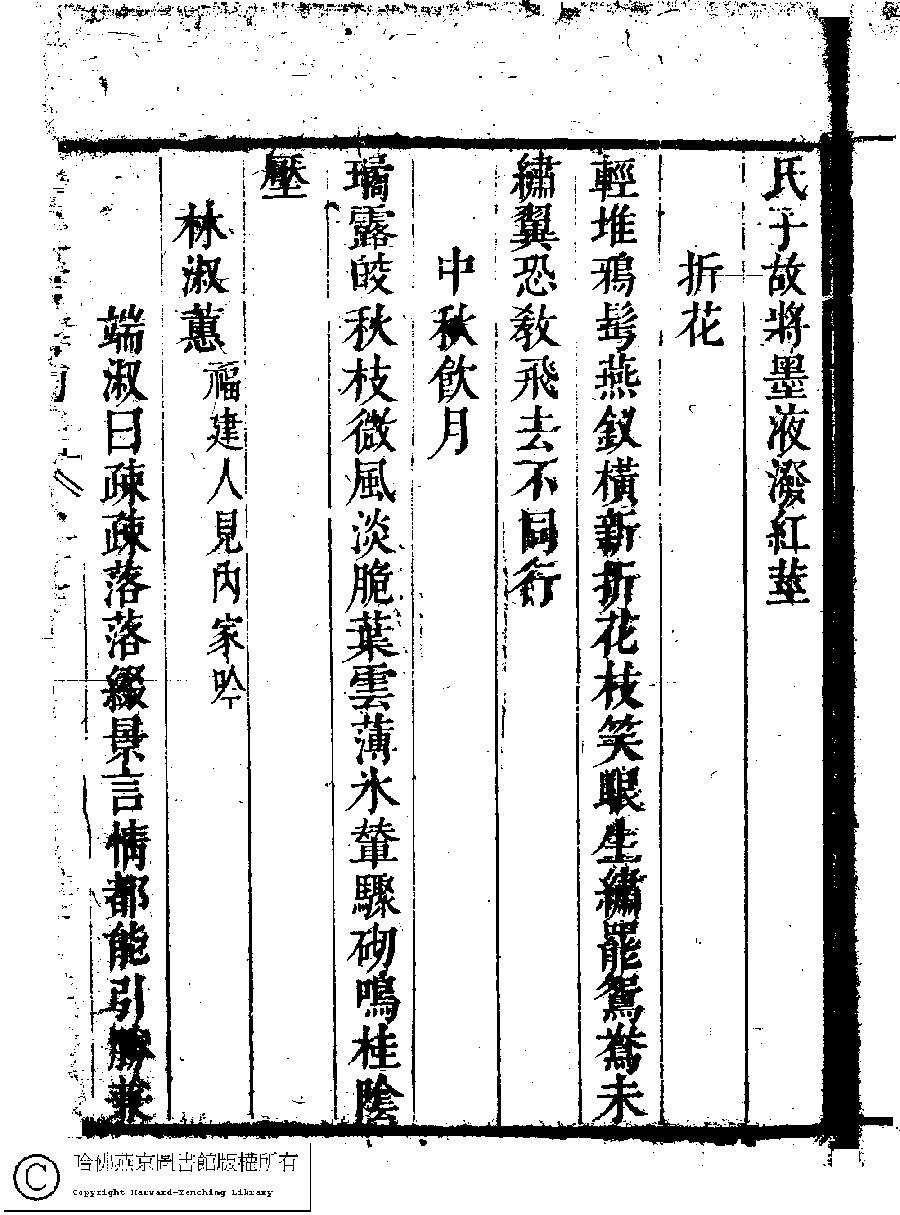 氏子故將墨液潑紅莖
折花
輕堆鴉髩燕釵橫新折花枝笑眼生繡罷鴛鴦未
繡翼恐敎飛去不同行
中秋飲月
璚露皎秋枝微風淡脆葉雲薄氷輦驟砌鳴桂陰
壓
林淑蕙 福建人見內家吟
端淑曰疎疎落落綴景言情都能引勝兼
哈佛燕京圖書館版權所有
Copyright Harvard-Yenching Library